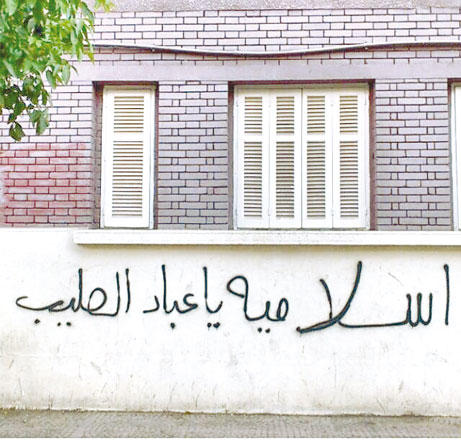 اسلامية يا عباد الصليب